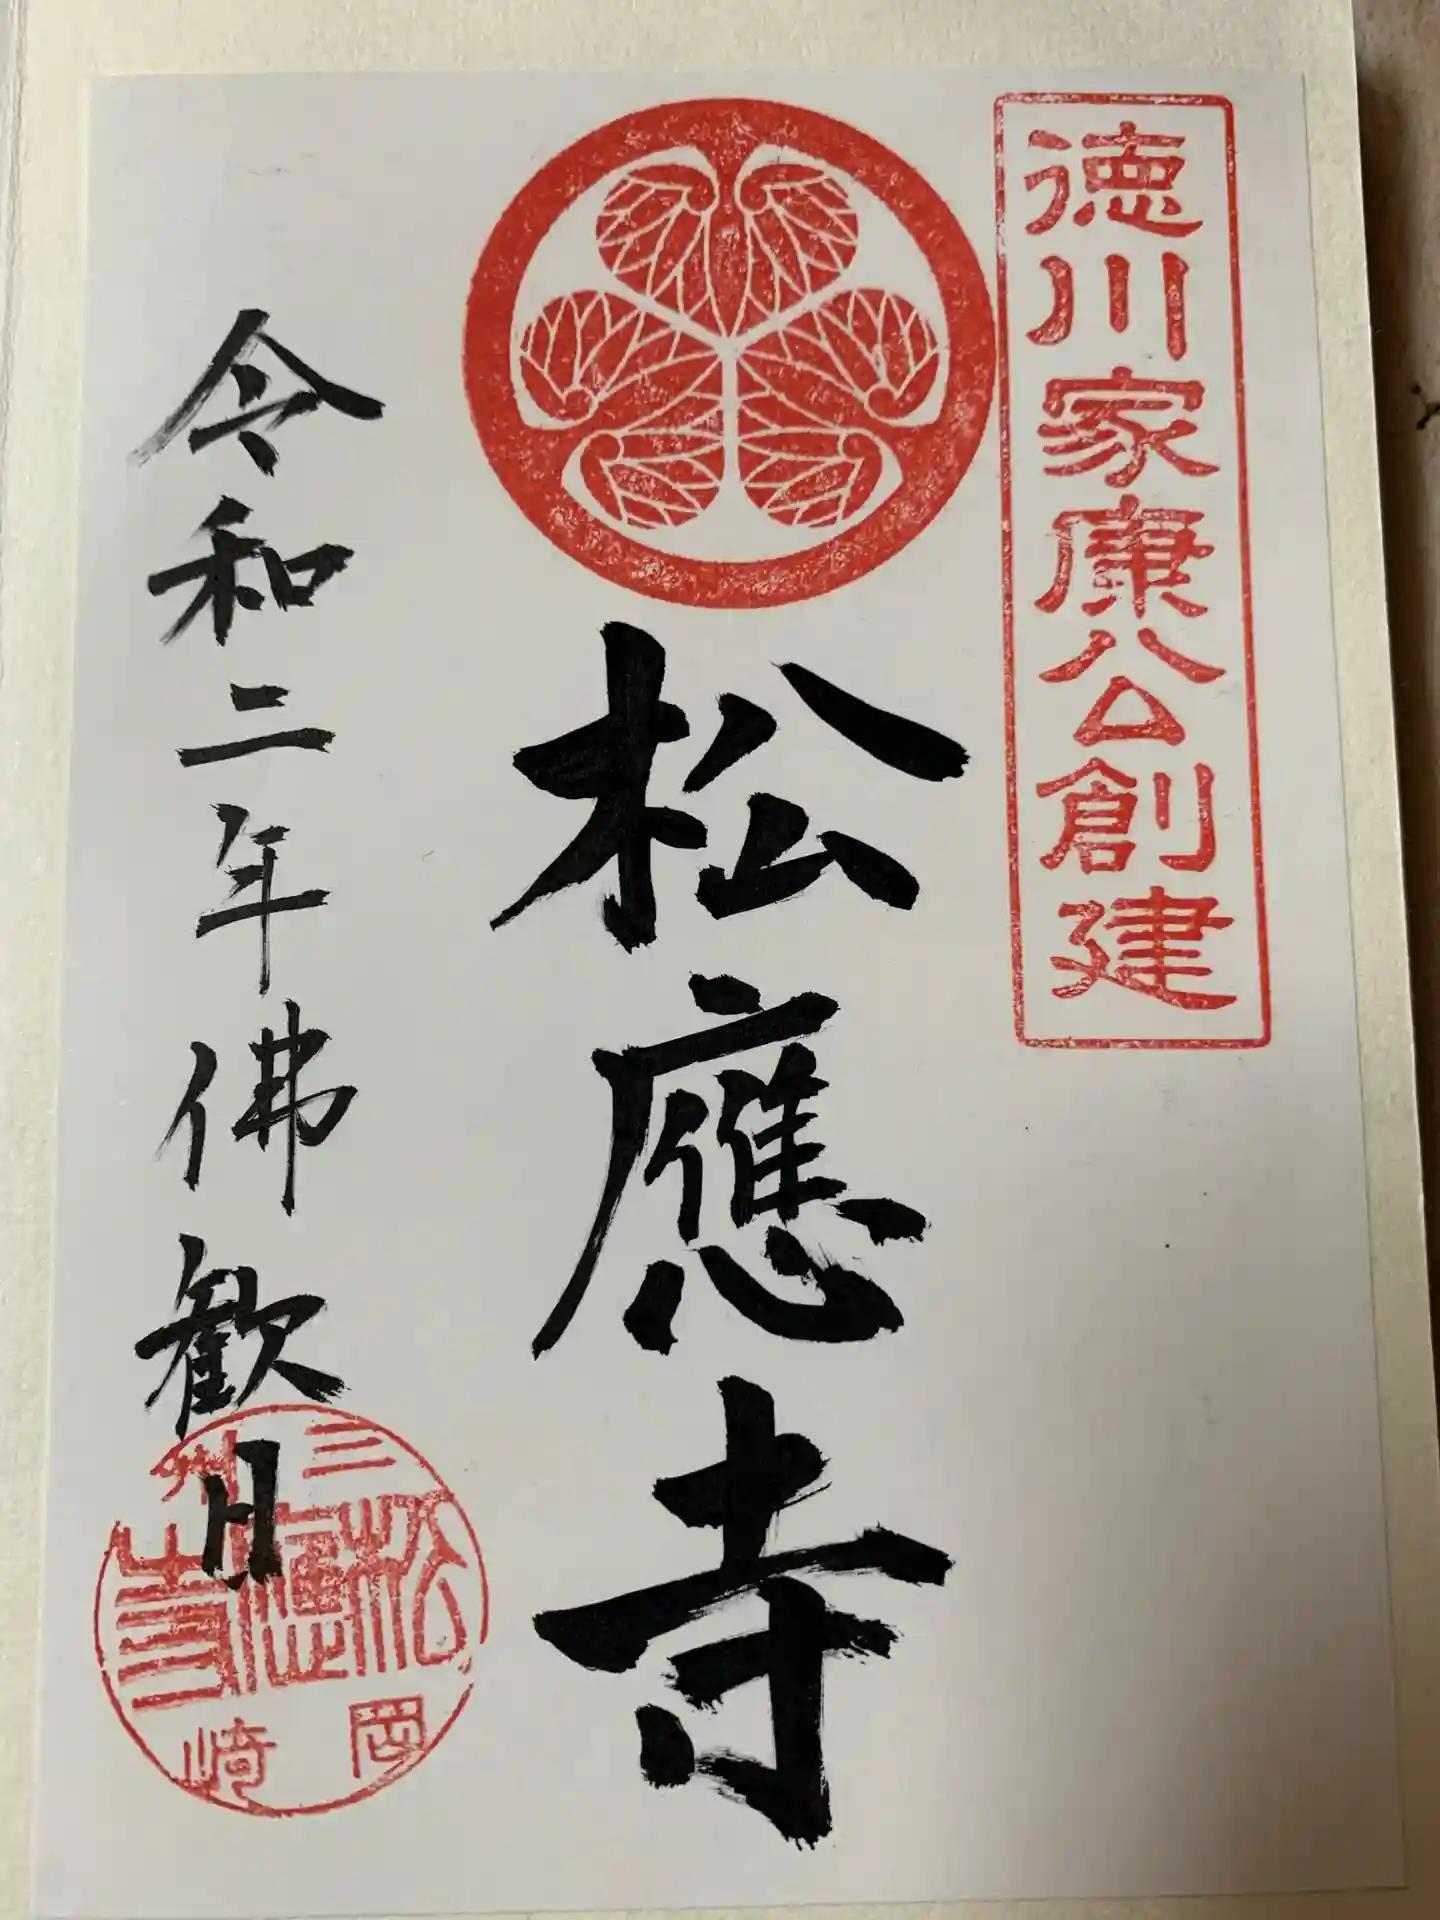 徳川家康公創建
松應寺
令和二年佛歓日
三州
松應寺
岡崎